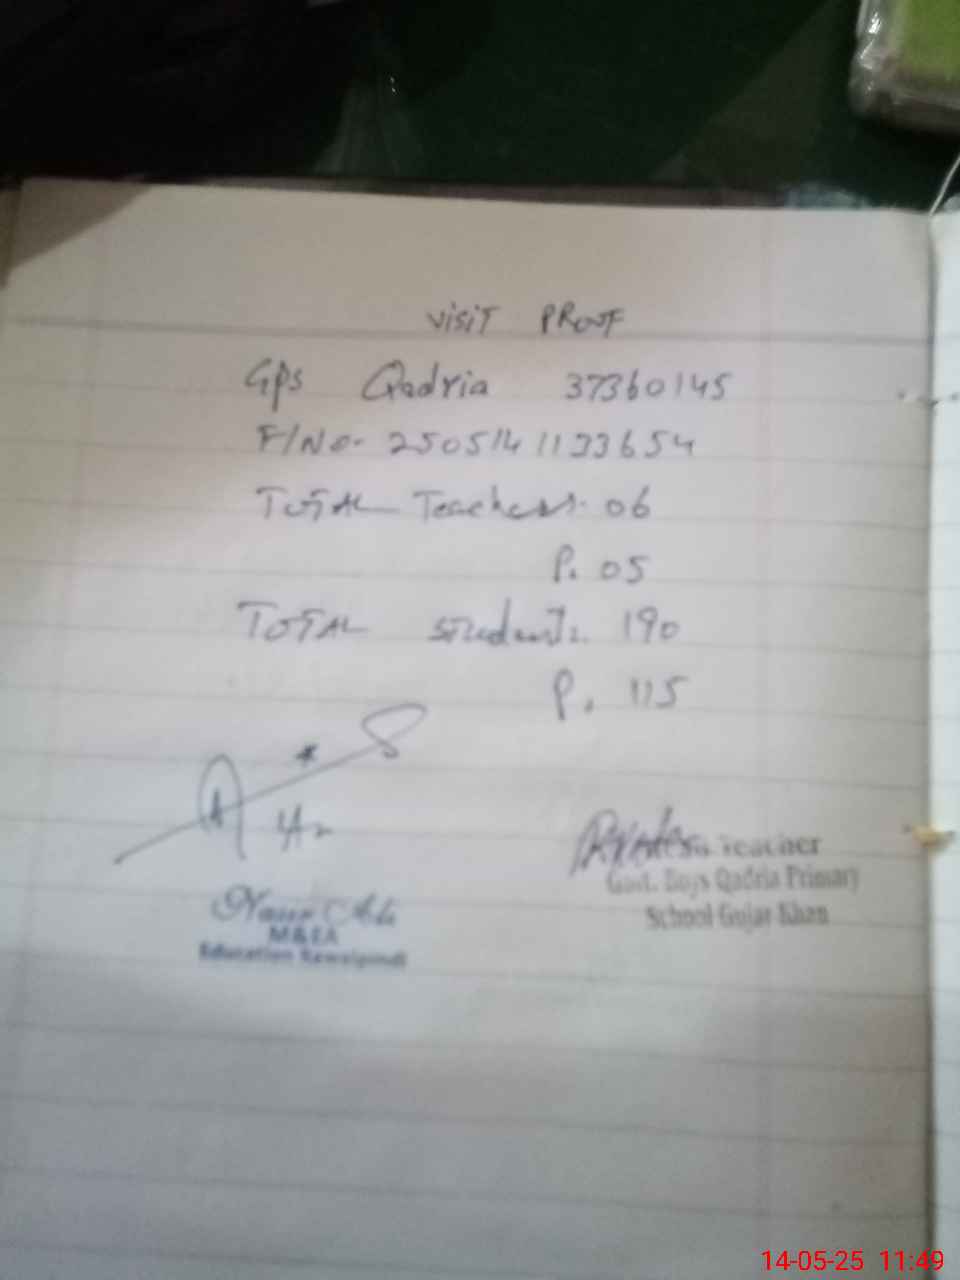 VISIT PROOF
GPS Qadria 37360145
F/No- 250514 1133654
TOTAL Teachers. 06
P. 05
TOTAL students. 190
P. 115
M&EA
Education Rawalpindi
Teacher
Govt. Boys Qadria Primary
School Gujar Khan
14-05-25 11:49